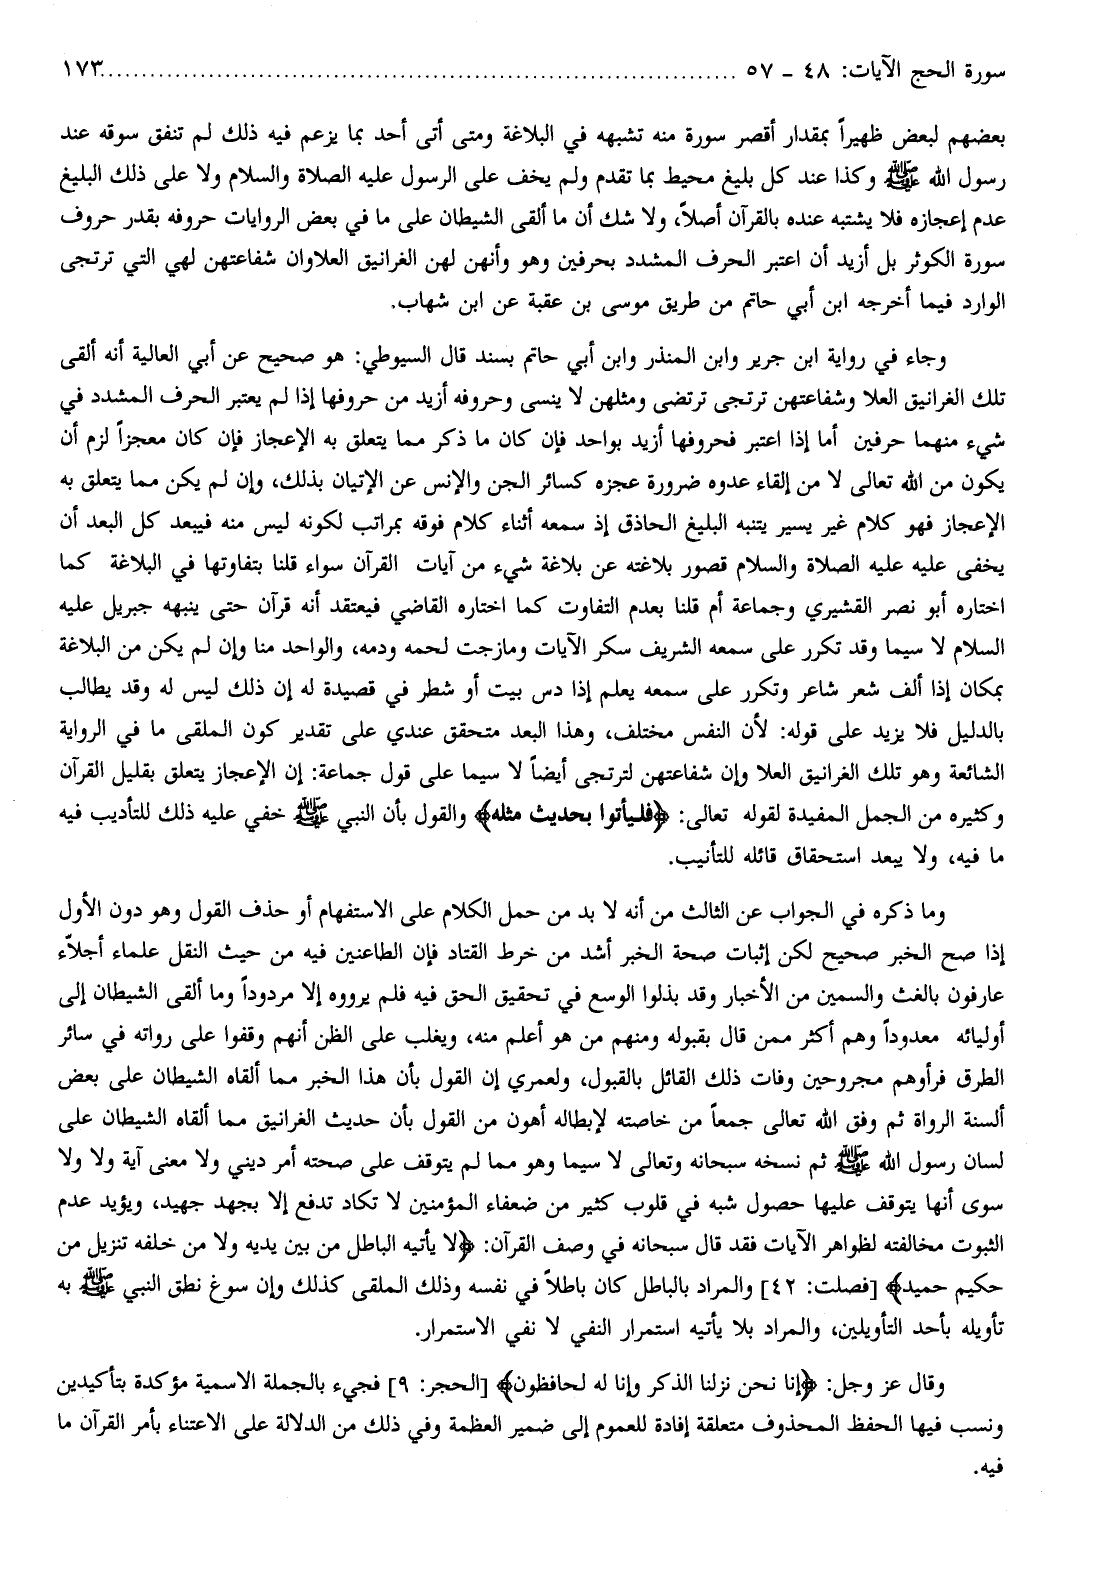 سورة الحج الآيات: ٤٨ ـ ٥٧ ........................................ ١٧٣
بعضهم لبعض ظهيراً بمقدار أقصر سورة منه تشبهه في البلاغة ومتى أتى أحد بما يزعم فيه ذلك لم تنفق سوقه عند
رسول الله ﷺ وكذا عند كل بليغ محيط بما تقدم ولم يخف على الرسول عليه الصلاة والسلام ولا على ذلك البليغ
عدم إعجازه فلا يشتبه عنده بالقرآن أصلاً، ولا شك أن ما ألقى الشيطان على ما في بعض الروايات حروفه بقدر حروف
سورة الكوثر بل أزيد أن اعتبر الحرف المشدد بحرفين وهو وأنهن لهن الغرانيق العلاوان شفاعتهن لهي التي ترتجى
الوارد فيما أخرجه ابن أبي حاتم من طريق موسى بن عقبة عن ابن شهاب.
وجاء في رواية ابن جرير وابن المنذر وابن أبي حاتم بسند قال السيوطي: هو صحيح عن أبي العالية أنه ألقى
تلك الغرانيق العلا وشفاعتهن ترتجى ترتضى ومثلهن لا ينسى وحروفه أزيد من حروفها إذا لم يعتبر الحرف المشدد في
شيء منهما حرفين أما إذا اعتبر فحروفها أزيد بواحد فإن كان ما ذكر مما يتعلق به الإعجاز فإن كان معجزاً لزم أن
يكون من الله تعالى لا من إلقاء عدوه ضرورة عجزه كسائر الجن والإنس عن الإتيان بذلك، وإن لم يكن مما يتعلق به
الإعجاز فهو كلام غير يسير يتنبه البليغ الحاذق إذ سمعه أثناء كلام فوقه بمراتب لكونه ليس منه فيبعد كل البعد أن
يخفى عليه عليه الصلاة والسلام قصور بلاغته عن بلاغة شيء من آيات القرآن سواء قلنا بتفاوتها في البلاغة كما
اختاره أبو نصر القشيري وجماعة أم قلنا بعدم التفاوت كما اختاره القاضي فيعتقد أنه قرآن حتى ينبهه جبريل عليه
السلام لا سيما وقد تكرر على سمعه الشريف سكر الآيات ومازجت لحمه ودمه، والواحد منا وإن لم يكن من البلاغة
بمكان إذا ألف شعر شاعر وتكرر على سمعه يعلم إذا دس بيت أو شطر في قصيدة له إن ذلك ليس له وقد يطالب
بالدليل فلا يزيد على قوله: لأن النفس مختلف، وهذا البعد متحقق عندي على تقدير كون الملقى ما في الرواية
الشائعة وهو تلك الغرانيق العلا وإن شفاعتهن لترتجى أيضاً لا سيما على قول جماعة: إن الإعجاز يتعلق بقليل القرآن
وكثيره من الجمل المفيدة لقوله تعالى: ﴿فليأتوا بحديث مثله﴾ والقول بأن النبي ﷺ خفي عليه ذلك للتأديب فيه
ما فيه، ولا يبعد استحقاق قائله للتأنيب.
وما ذكره في الجواب عن الثالث من أنه لا بد من حمل الكلام على الاستفهام أو حذف القول وهو دون الأول
إذا صح الخبر صحيح لكن إثبات صحة الخبر أشد من خرط القتاد فإن الطاعنين فيه من حيث النقل علماء أجلاّء
عارفون بالغث والسمين من الأخبار وقد بذلوا الوسع في تحقيق الحق فيه فلم يرووه إلا مردوداً وما ألقى الشيطان إلى
أوليائه معدوداً وهم أكثر ممن قال بقبوله ومنهم من هو أعلم منه، ويغلب على الظن أنهم وقفوا على رواته في سائر
الطرق فرأوهم مجروحين وفات ذلك القائل بالقبول، ولعمري إن القول بأن هذا الخبر مما ألقاه الشيطان على بعض
ألسنة الرواة ثم وفق الله تعالى جمعاً من خاصته لإبطاله أهون من القول بأن حديث الغرانيق مما ألقاه الشيطان على
لسان رسول الله ﷺ ثم نسخه سبحانه وتعالى لا سيما وهو مما لم يتوقف على صحته أمر ديني ولا معنى آية ولا ولا
سوى أنها يتوقف عليها حصول شبه في قلوب كثير من ضعفاء المؤمنين لا تكاد تدفع إلا بجهد جهيد، ويؤيد عدم
الثبوت مخالفته لظواهر الآيات فقد قال سبحانه في وصف القرآن: ﴿لا يأتيه الباطل من بين يديه ولا من خلفه تنزيل من
حكيم حميد﴾ [فصلت: ٤٢] والمراد بالباطل كان باطلاً في نفسه وذلك الملقى كذلك وإن سوغ نطق النبي ﷺ به
تأويله بأحد التأويلين، والمراد بلا يأتيه استمرار النفي لا نفي الاستمرار.
وقال عز وجل: ﴿إنا نحن نزلنا الذكر وإنا له لحافظون﴾ [الحجر: ٩] فجيء بالجملة الاسمية مؤكدة بتأكيدين
ونسب فيها الحفظ المحذوف متعلقة إفادة للعموم إلى ضمير العظمة وفي ذلك من الدلالة على الاعتناء بأمر القرآن ما
فيه.